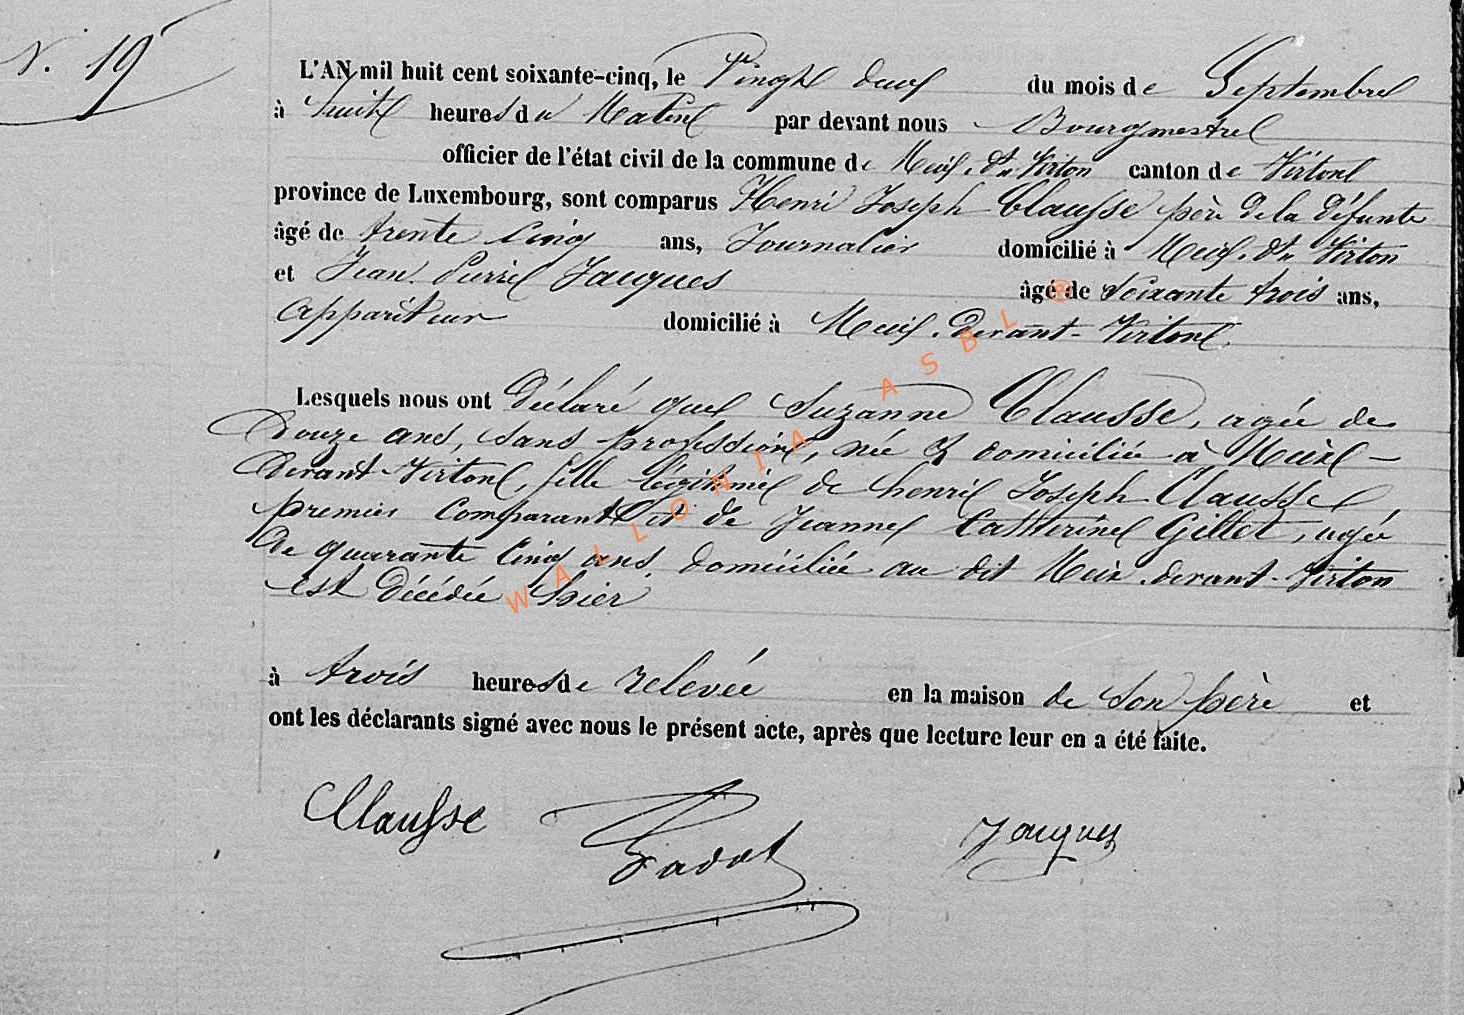 N. 19
L'AN mil huit cent soixante-cinq, le Vingt deux du mois de Septembre
à huit heures du Matin par devant nous Bourgmestre
officier de l'état civil de la commune de Meix-dt-Virton canton de Virton
province de Luxembourg, sont comparus Henri Joseph Clausse père de la défunte
âgé de trente cinq ans, Journalier domicilié à Meix-dt-Virton
et Jean Pierre Jacques âgé de Soixante trois ans,
appariteur domicilié à Meix-devant-Virton
Lesquels nous ont déclaré que Suzanne Clausse, agée de
Douze ans, sans profession, née & domiciliée à Meix-
devant-Virton, fille légitime de henri Joseph Clausse
premier Comparant et de Jeanne Catherine Gillet, agée
de quarante Cinq ans domiciliée au dit Meix-devant-Virton
est décédée hier
à trois heures de relevée en la maison de son père et
ont les déclarants signé avec nous le présent acte, après que lecture leur en a été faite.
Clausse Jacques
WALLONIA ASBL ®